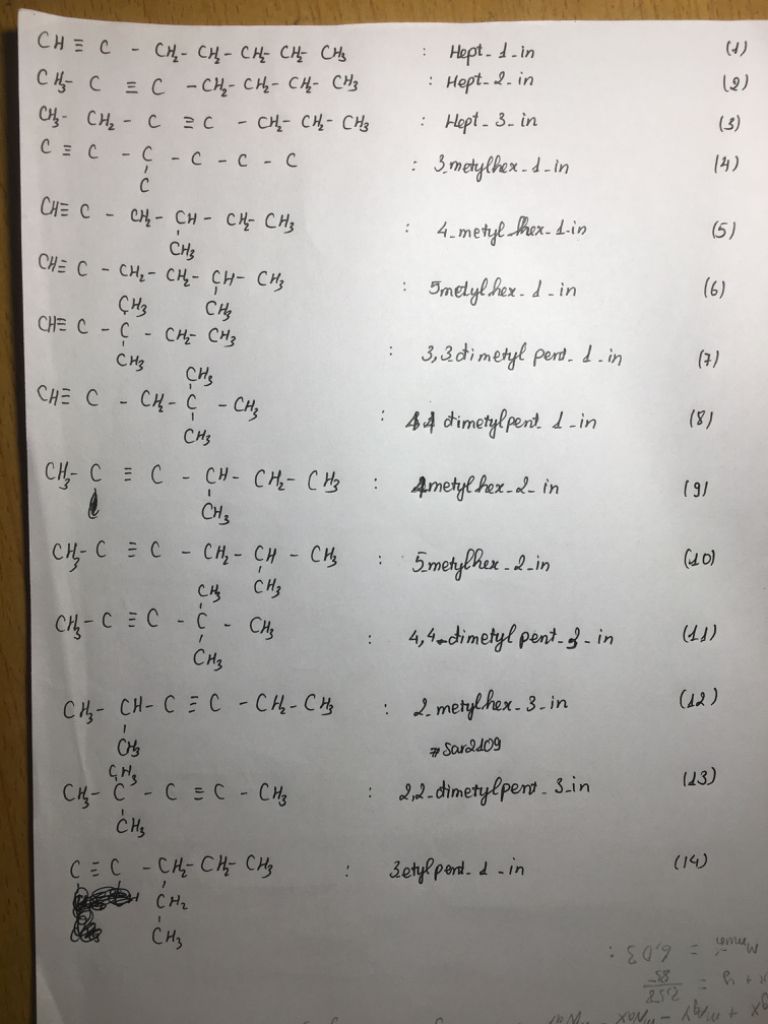 CH ≡ C - CH₂- CH₂- CH₂- CH₂- CH₃ : Hept-1-in (1)
CH₃- C ≡ C - CH₂- CH₂- CH₂- CH₃ : Hept-2-in (2)
CH₃- CH₂- C ≡ C - CH₂- CH₂- CH₃ : Hept-3-in (3)
C ≡ C - C - C - C - C : 3-metylhex-1-in (4)
C
CH≡ C - CH₂- CH - CH₂- CH₃ : 4-metyl hex-1-in (5)
CH₃
CH≡ C - CH₂- CH₂- CH- CH₃ : 5metylhex-1-in (6)
CH₃ CH₃
CH≡ C - C - CH₂- CH₃ : 3,3-dimetyl pent-1-in (7)
CH₃
CH₃
CH≡ C - CH₂- C - CH₃ : 4,4 dimetylpent-1-in (8)
CH₃
CH₃- C ≡ C - CH- CH₂- CH₃ : 4metylhex-2-in (9)
CH₃
CH₃- C ≡ C - CH₂- CH - CH₃ : 5-metylhex-2-in (10)
CH₃ CH₃
CH₃- C ≡ C - C - CH₃ : 4,4-dimetylpent-2-in (11)
CH₃
CH₃- CH- C ≡ C - CH₂- CH₃ : 2-metylhex-3-in (12)
CH₃ #Sar2109
CH₃
CH₃- C - C ≡ C - CH₃ : 2,2-dimetylpent-3-in (13)
CH₃
C ≡ C - CH₂- CH₂- CH₃ : 3-etylpent-1-in (14)
CH₂
CH₃